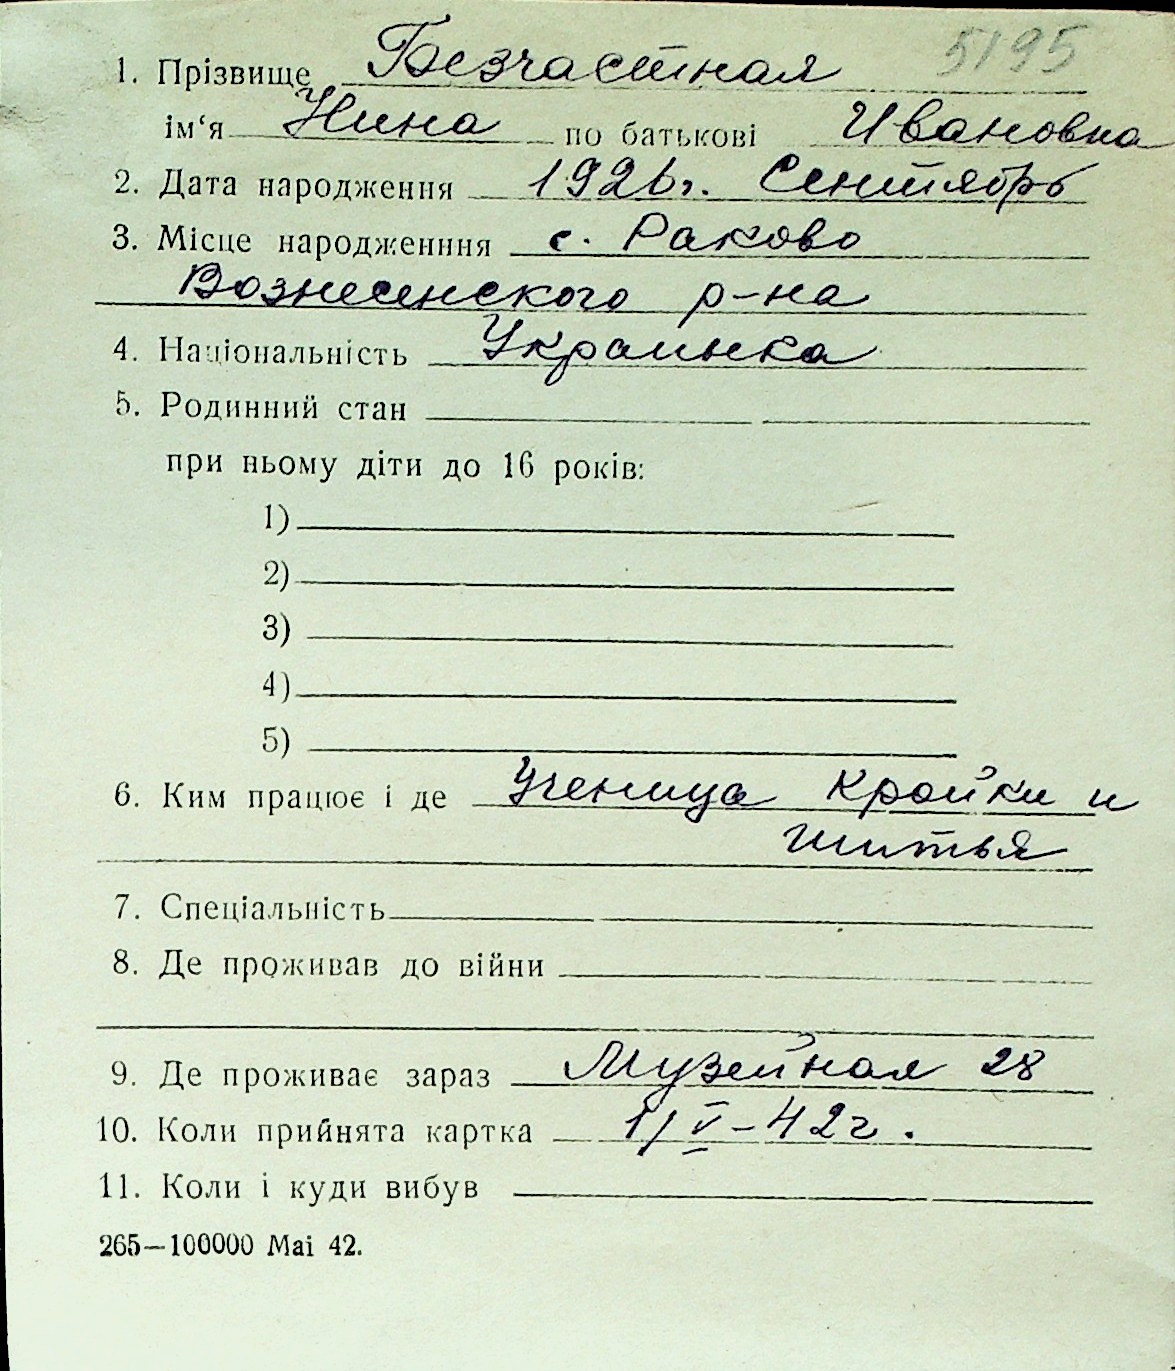 5195
1. Прізвище Безчастная
ім‘я Нина по батькові Ивановна
2. Дата народження 1926г. Сентябрь
3. Місце народженння с. Раково
Вознесенского р-на
4. Національність Украинка
5. Родинний стан
при ньому діти до 16 років:
1)
2)
3)
4)
5)
6. Ким працює і де Ученица кройки и
шитья
7. Спеціальність
8. Де проживав до війни
9. Де проживає зараз Музейная 28
10. Коли прийнята картка 1/V-42г.
11. Коли і куди вибув
265—100000 Маі 42.